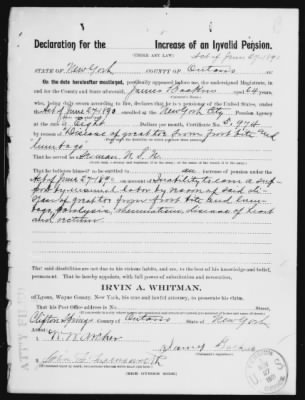 Declaration for the Increase of an Invalid Pension.
(UNDER ANY LAW)
Act of June 27 1890
STATE OF New York COUNTY OF Ontario
On the date hereafter mentioned, personally appeared before me, the undersigned Magistrate, in
and for the County and State aforesaid, James aged 64 years,
who, being duly sworn according to law, declares that he is a pensioner of the United States, under
the Act of June 27 1890 enrolled at the New York City Pension Agency
at the rate of Eight Dollars per month, Certificate No. 974
by reason of "Disease of great toe from frost bite and
lumbago"
That he served as Seaman U. S. N.
That he believes himself to be entitled to an increase of pension under the
Act of June 27 1890 on account of inability to earn a sup-
port by manual labor by reason of said dis-
ease of great toe from frost bite and lum-
bago, paralysis, rheumatism, disease of heart
and
That said disabilities are not due to his vicious habits, and are, to the best of his knowledge and belief,
permanent. That he hereby appoints, with full power of substitution and revocation,
IRVIN A. WHITMAN,
of Lyons, Wayne County, New York, his true and lawful attorney, to prosecute his claim.
That his Post Office address is No. Street,
Clifton Springs County of Ontario State of New York
James
John
(SEE OTHER SIDE.)